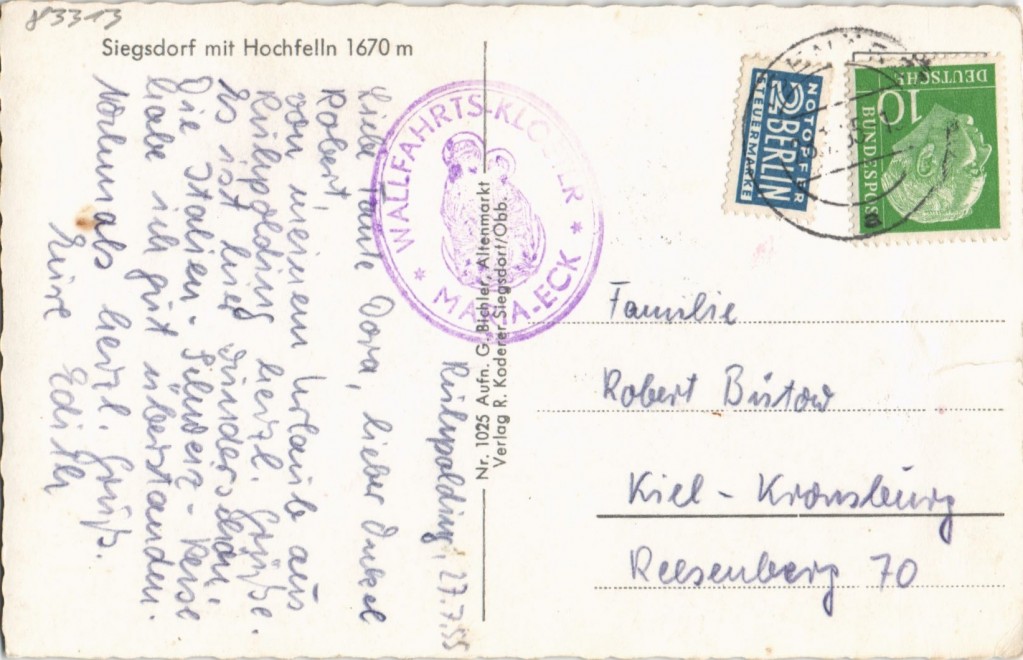 83313
Siegsdorf mit Hochfelln 1670 m
Ruhpolding, 27.7.55
Liebe Tante Dora, lieber Onkel
Robert,
von meinem Urlaub aus
Ruhpolding herzl. Grüße.
Es ist hier wunderschön.
Die Italien-Schweiz-Reise
habe ich gut überstanden.
Nochmals herzl. Grüße.
Eure Edith
WALLFAHRTS-KLOSTER
* MARIA-ECK *
Nr. 1025 Aufn. G. Bichler, Altenmarkt
Verlag R. Koderer Siegsdorf/Obb.
NOTOPFER
2 BERLIN
STEUERMARKE
DEUTSCHE
10
BUNDESPOST
Familie
Robert Bütow
Kiel - Kronsburg
Reesenberg 70